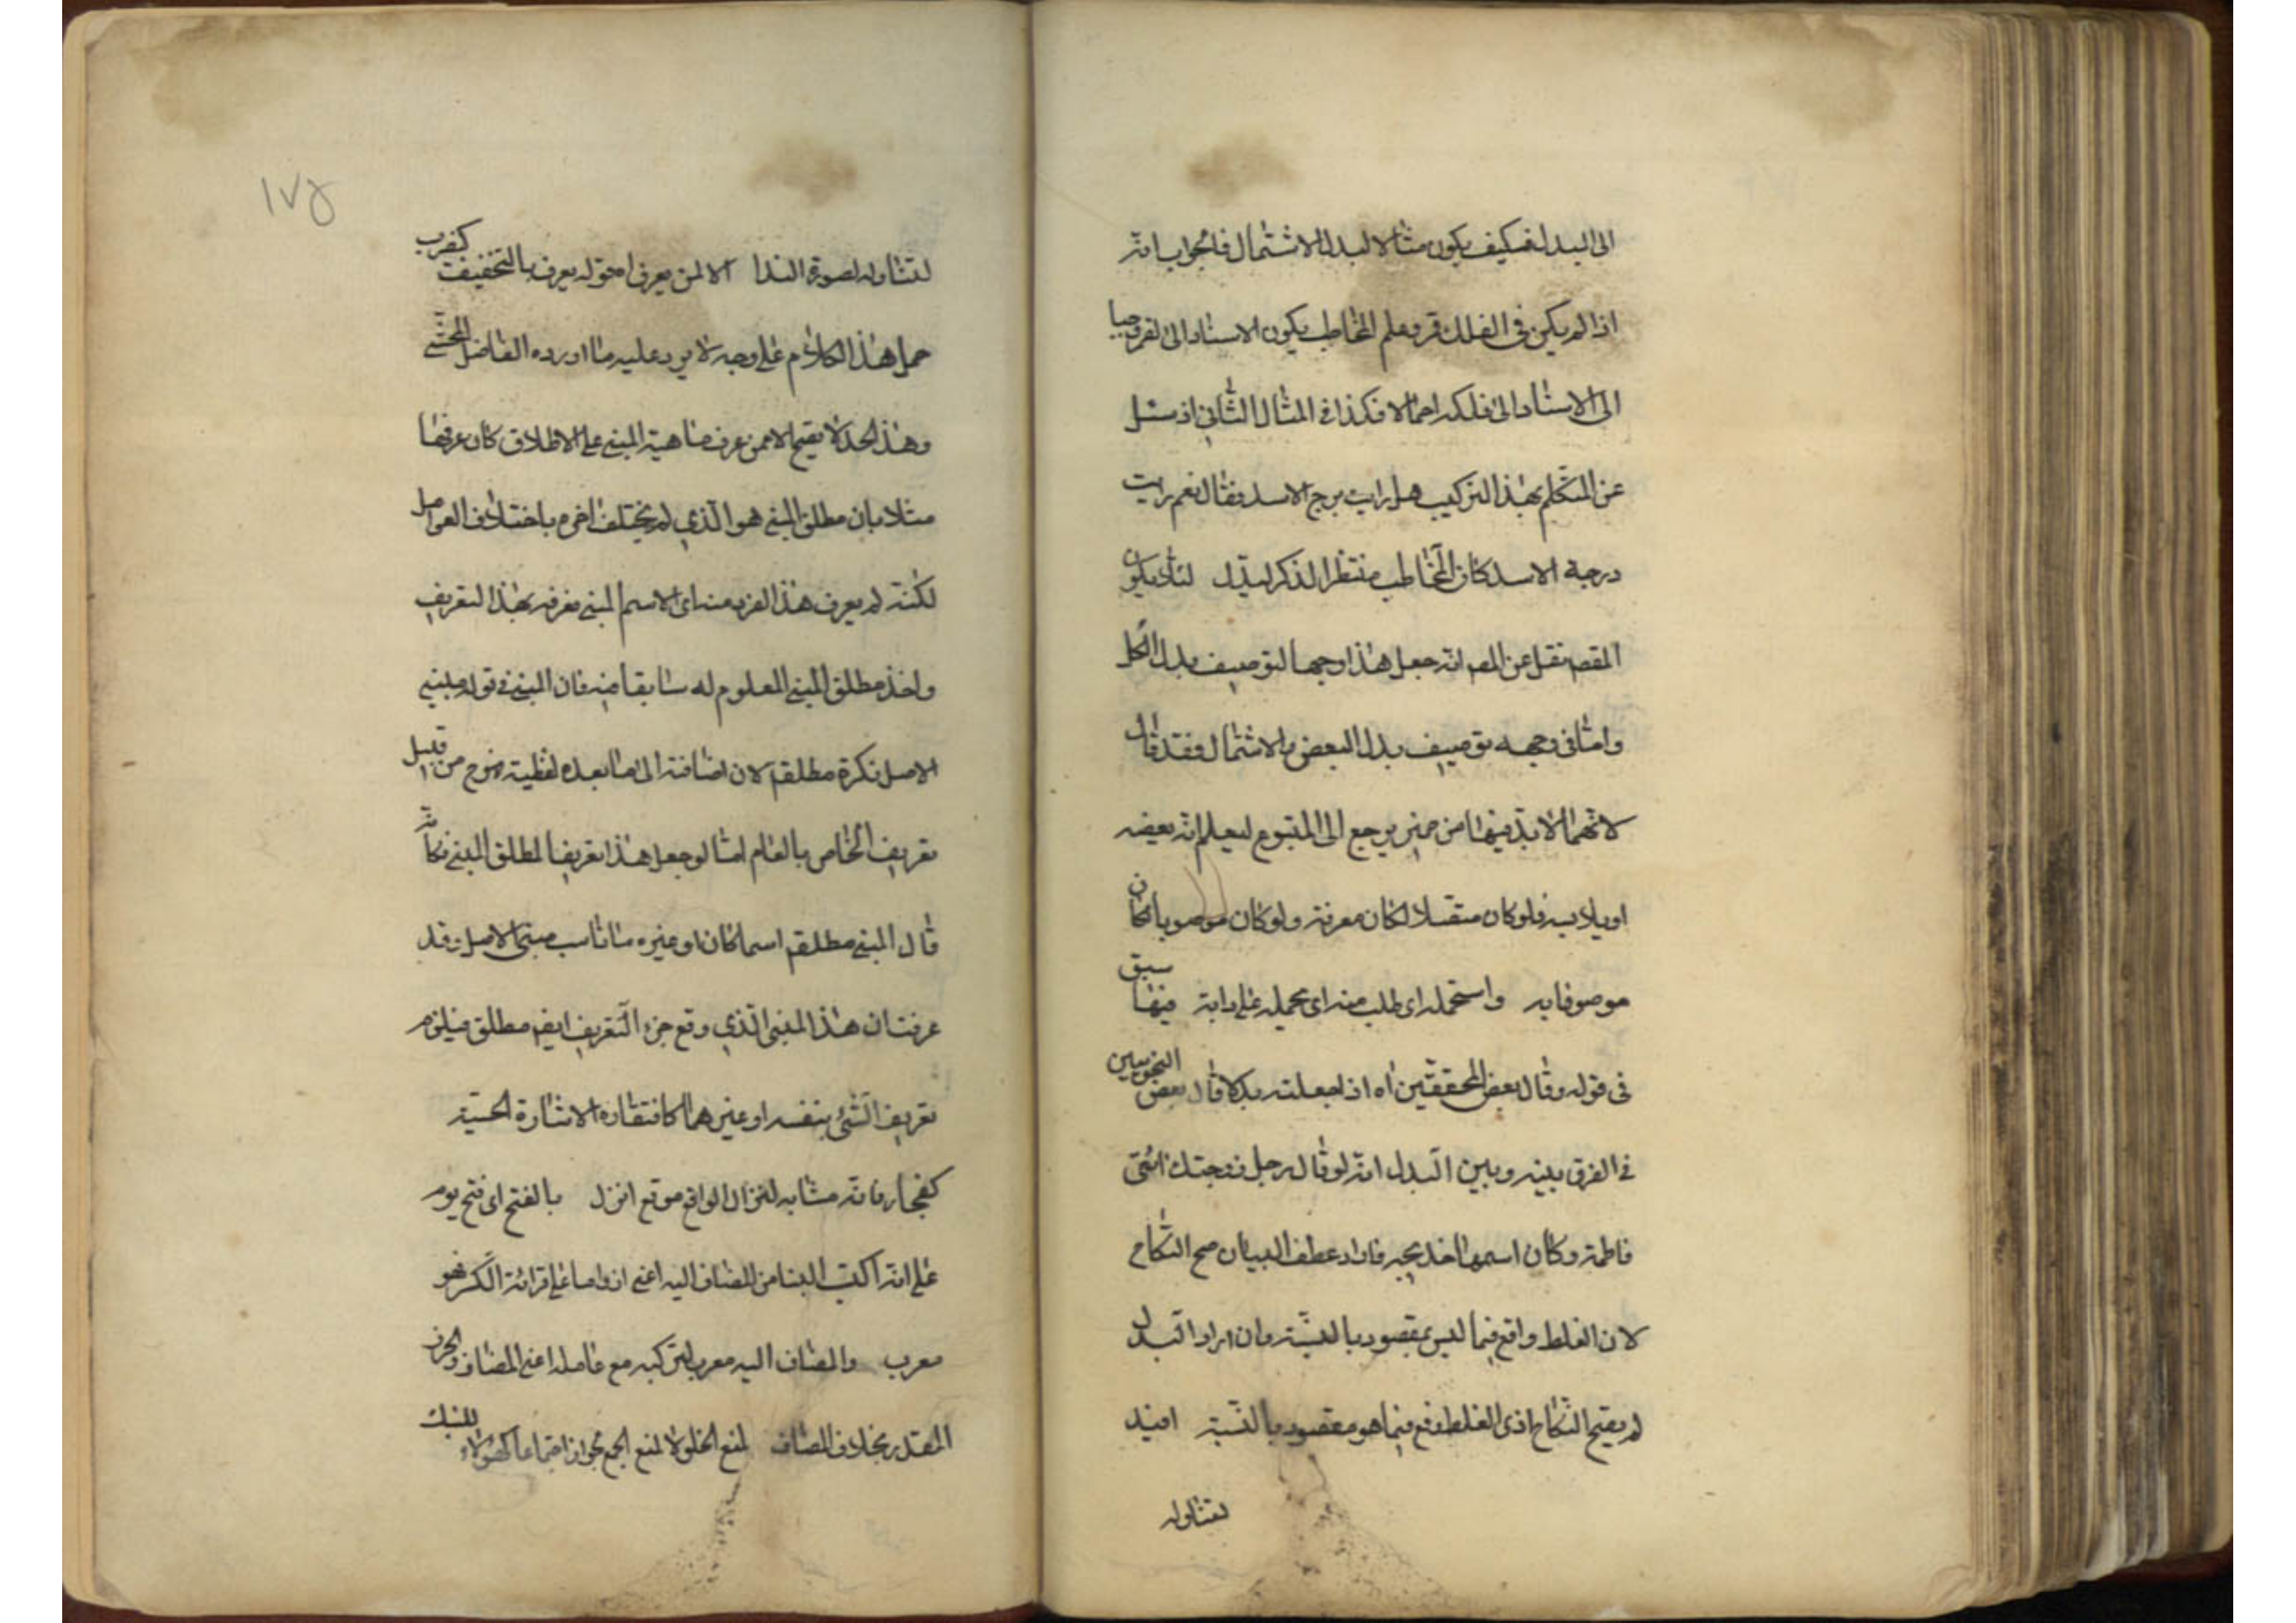 الى البدل فكيف يكون مثالا لبدل الاشتمال فالجواب انه
اذا لم يكن في الفلك قمر وعلم المخاطب يكون الاسناد الى القمر موجبا
الى الاسناد الى فلكه اجمالا فكذا في المثال الثاني اذ سئل
عن المتكلم بهذا التركيب هل رايت برج الاسد فقال نعم رايت
درجة الاسد كان المخاطب منتظرا لذكر البدل لئلا يكون
المقصم نقل عن المصم انه جعل هذا وجها لتوصيف بدل الكل
واما في وجه توصيف بدل البعض والاشتمال فقد قال
لانهما لا بد فيهما من ضمير يرجع الى المتبوع ليعلم انه بعضه
او يلابسه فلو كان متصلا لكان معرفة ولو كان موصوبا فكان
موصوفا به واستحمله اى طلب منه اى يحمله على دابة فيها سبق
في قوله وقال بعض المحققين اه اذا جعلته بدلا قال بعض النحويين
في الفرق بينه وبين البدل انه لو قال رجل زوجتك ابنتى
فاطمة وكان اسمها خديجة فاراد عطف البيان صح النكاح
لان الغلط واقع فيما ليس بمقصود بالنسبة وان اراد البدل
لم يصح النكاح اذ الغلط وقع فيما هو مقصود بالنسبة افيد
لتناوله
١٧٥
لتناوله لصورة الندا الا لمن يعرف اه قوله يعرف بالتخفيف كضرب
حمل هذا الكلام على وجه لا يرد عليه ما اورده الفاضل المحشى
وهذا الحد لا يصح الا ممن عرف ماهية المبنى على الاطلاق كان عرفها
مثلا بان مطلق المبنى هو الذى لم يختلف اخره باختلاف العوامل
لكنه لم يعرف هذا الفرد منه اى الاسم المبنى فعرفه بهذا التعريف
واخذ مطلق المبنى المعلوم له سابقا فيه فان المبنى في قوله مبنى
الاصل نكرة مطلقة لان اضافته الى ما بعده لفظية فهو ح من قبيل
تعريف الخاص بالعام اما لو جعل هذا تعريفا لمطلق المبنى فكانه
قال المبنى مطلقم اسما كان او غيره ما ناسب مبنى الاصل وقد
عرفت ان هذا المبنى الذى وقع جزء التعريف ايضم مطلق فيلزم
تعريف الشئ بنفسه او غيرهما كافتقاره الاشارة الحسية
كفجار فانه مشابه لنزال الواقع موقع انزل بالفتح اى فتح يوم
على انه اكتسب البنا من المضاف اليه اعنى اذ واما على قرائة الكسر فهو
معرب والمضاف اليه معرب لتركبه مع عامله اعنى المضاف والحرف
المقدر بخلاف المضاف لمنع الخلو لا لمنع الجمع لجواز اجتماعها كهؤلاء